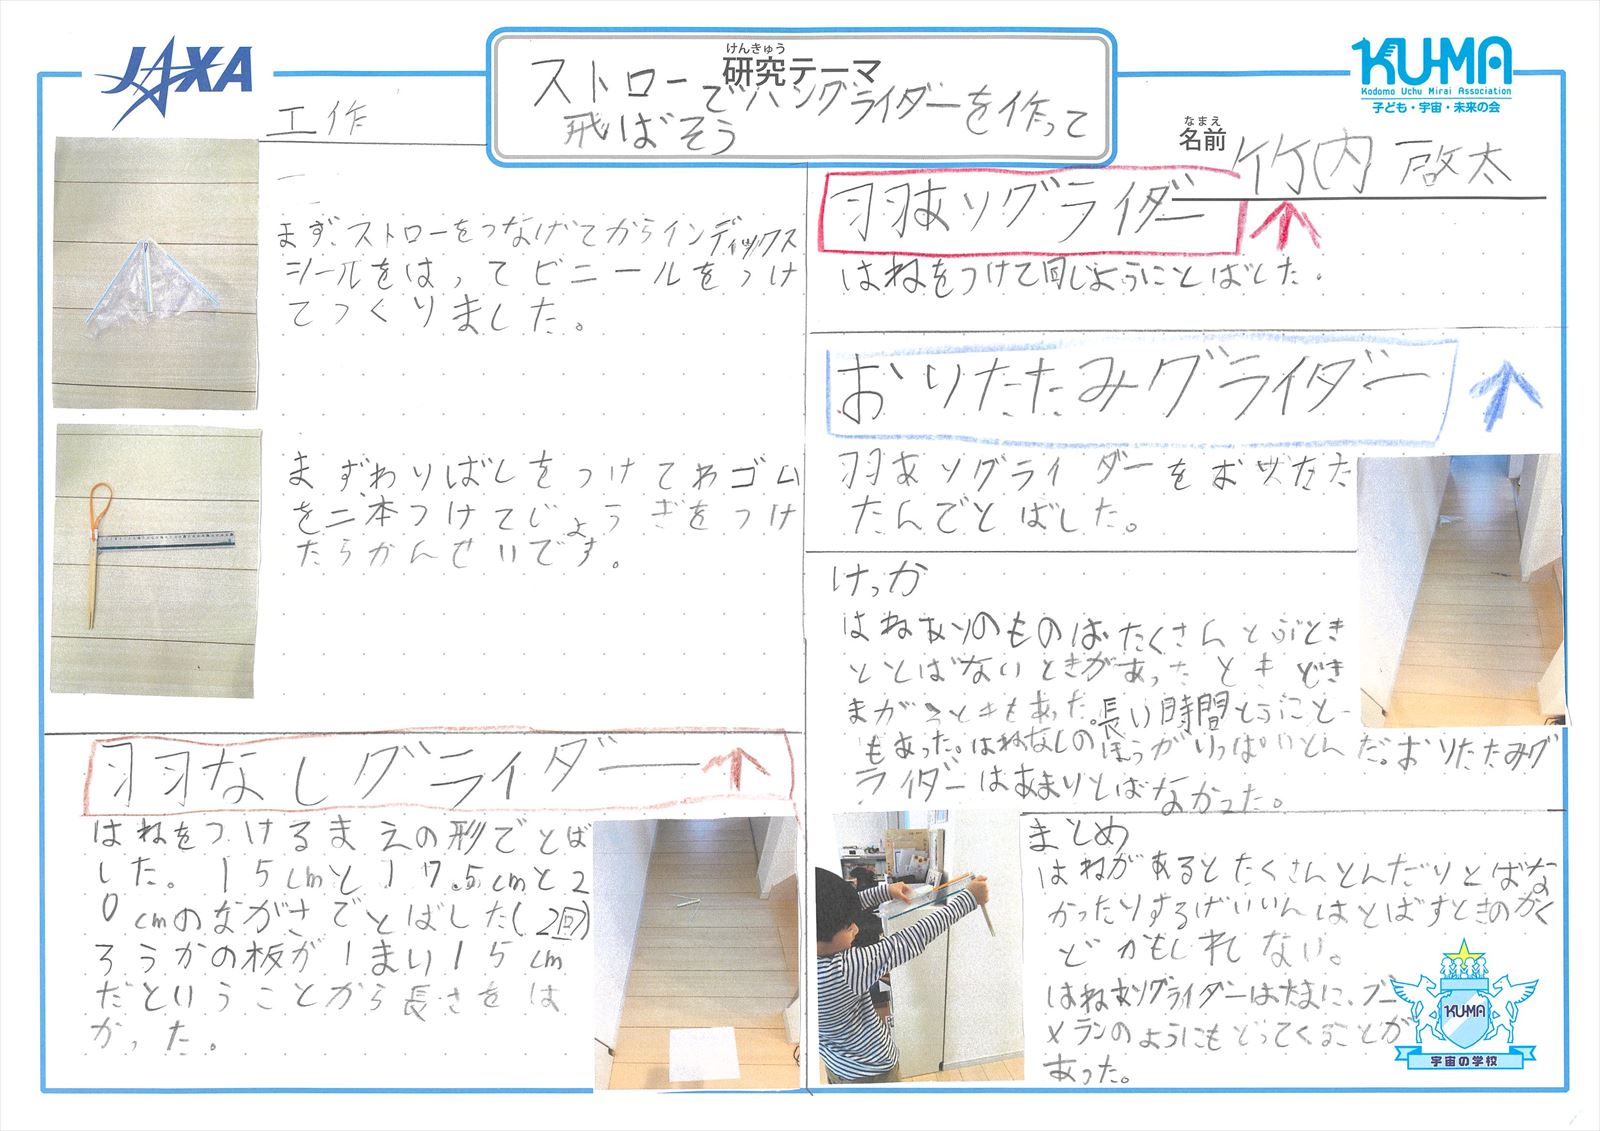 JAXA
けんきゅう
研究テーマ
ストローでハングライダーを作って
飛ばそう
KU-MA
Kodomo Uchu Mirai Association
子ども・宇宙・未来の会
なまえ
名前
竹内 啓太
工作
まず、ストローをつなげてからインディックス
シールをはってビニールをつけ
てつくりました。
まずわりばしをつけてわゴム
を二本つけてじょうぎをつけ
たらかんせいです。
羽なしグライダー
はねをつけるまえの形でとば
した。15cmと17.5cmと2
0cmのながさでとばした(2回)
ろうかの板が1まい15cm
だということから長さをは
かった。
羽ありグライダー
はねをつけて同じようにとばした.
おりたたみグライダー
羽ありグライダーをおりたた
たんでとばした。
けっか
はねありのものはたくさんとぶとき
ととばないときがあったときどき
まがるときもあった。長い時間とぶこと
もあった。はねなしのほうがいっぱいとんだ。おりたたみグ
ライダーはあまりとばなかった。
まとめ
はねがあるとたくさんとんだりとばな
かったりするげいいんはとばすときのかく
どかもしれない。
はねありグライダーはたまに、ブー
メランのようにもどってくることが
あった。
KU-MA
宇宙の学校